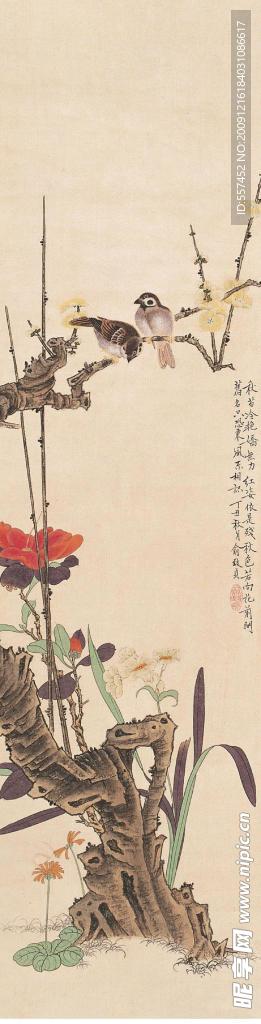 ID:557452 NO:20091216184031086617
秋苔冷艳娇无力红姿依是残秋色若向花前问
旧名只恐东风不相识丁丑秋月俞致贞
昵享网 www.nipic.cn